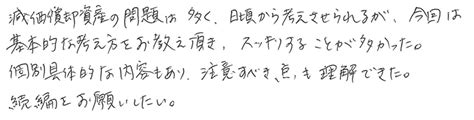 減価償却資産の問題は多く、日頃から考えさせられるが、今回は
基本的な考え方をお教え頂き、スッキリすることが多かった。
個別具体的な内容もあり、注意すべき、点、も理解できた。
続編をお願いしたい。